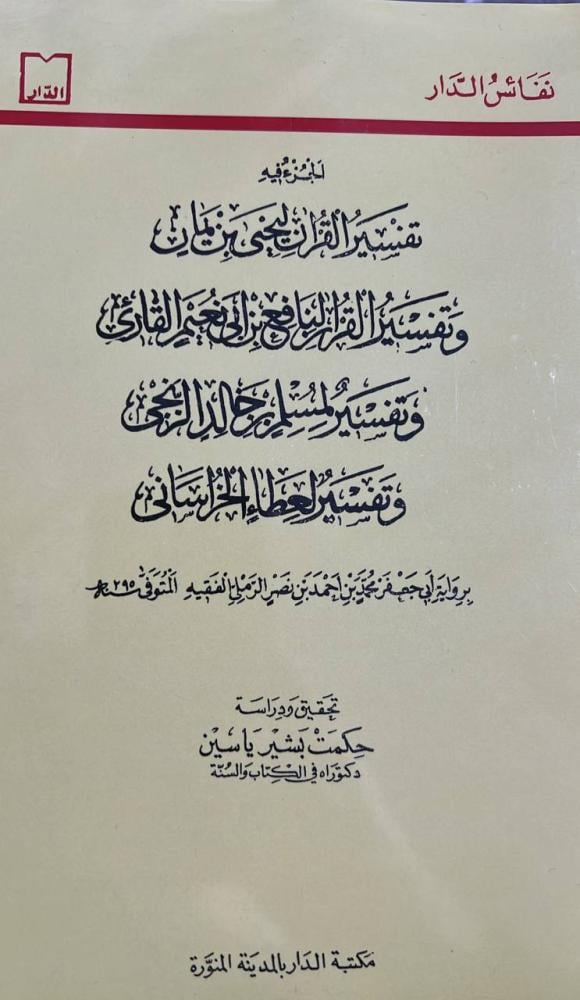 نَفَائِسُ الدَّار
الدّار
الجُزْءُ فِيهِ
تَفْسِيرُ القُرْآنِ لِيَحْيَى بْنِ يَمَانٍ
وَتَفْسِيرُ القُرْآنِ لِنَافِعِ بْنِ أَبِي نُعَيْمٍ القَارِئِ
وَتَفْسِيرٌ لِمُسْلِمِ بْنِ خَالِدٍ الزَّنْجِي
وَتَفْسِيرٌ لِعَطَاءٍ الخُرَاسَانِي
بِرِوَايَةِ أَبِي جَعْفَرٍ مُحَمَّدِ بْنِ أَحْمَدَ بْنِ نَصْرٍ الرَّمْلِيِّ الفَقِيهِ المُتَوَفَّى سَنَة ٢٩٥هـ
تحقيق ودراسة
حِكمَتْ بَشِيْر يَاسِين
دكتوراه في الكِتَاب والسُّنّة
مكتبة الدار بالمدينة المنوّرة